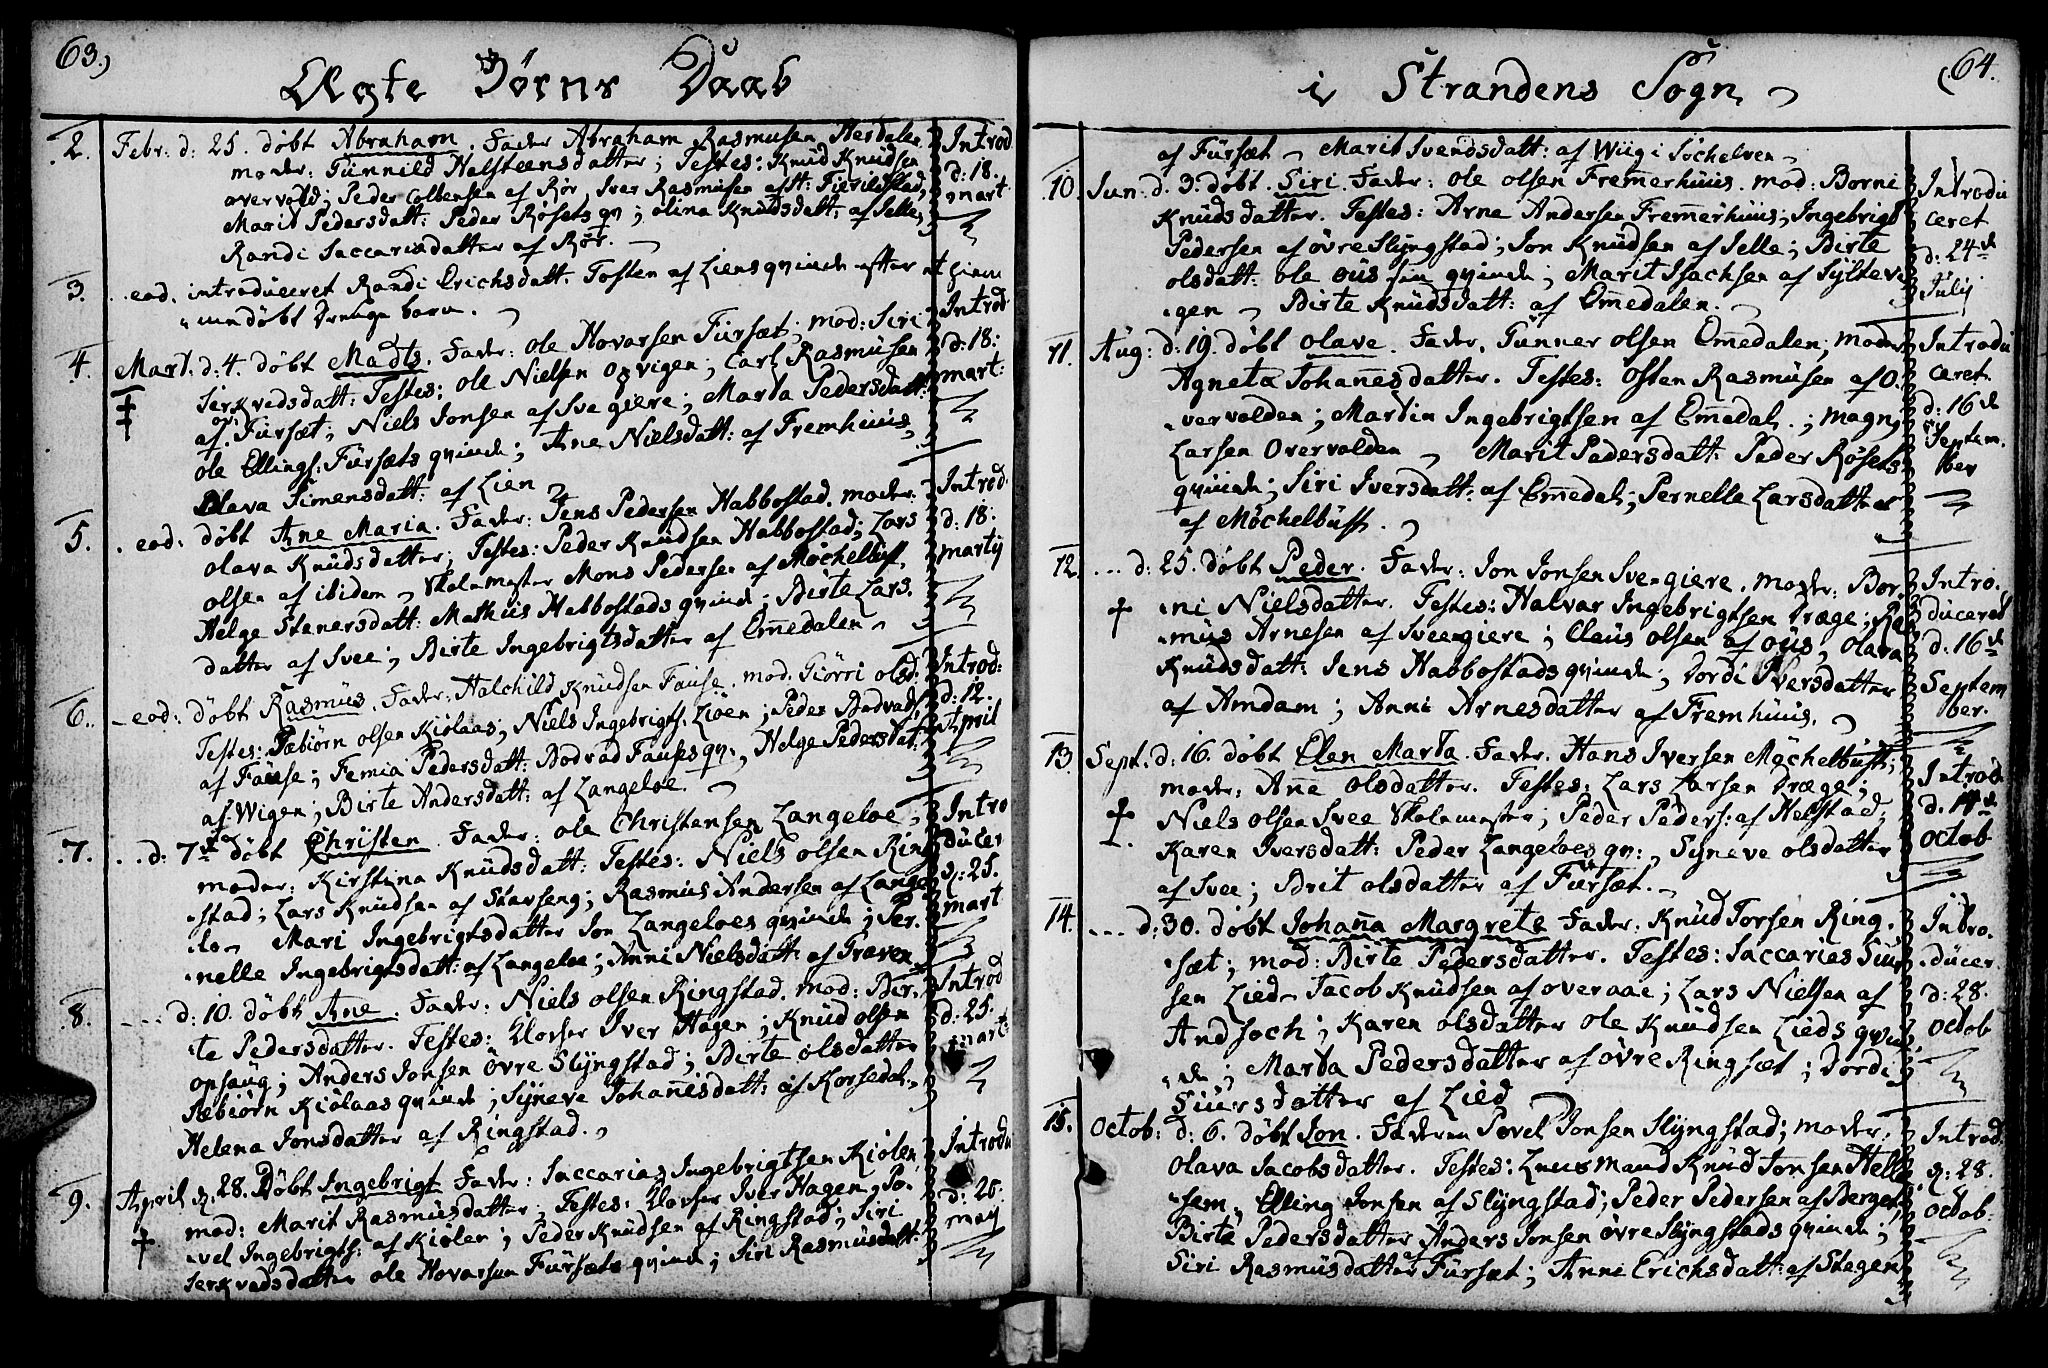 63.)
Ægte Børns Daab
2. Febr: d: 25. døbt Abraham. Fader Abraham Rasmusen Herdalen Introd
moder: Gunnild Halsteensdatter; Testes: Knud Knudsen d: 18.
overvold; Peder Colbensen af Rør, Iver Rasmusen af St: Fierildstad, mart
Marit Pedersdatt: Peder Røsets qv; olina Knudsdatt: af Selle,
Randi Saccariædatter af Rør.
3. eod. introduceret Randi Erichsdatt. Tosten af Liens qvinde efter et hiem
medøbt Drenge barn.
4. Mart. d: 4. døbt Madts. Fader: ole Hovarsen Fursæt; mod: Siri Introd
Serkvedsdatt: Testes: ole Nielsen opvigen; Carl Rasmusen d: 18:
af Fursæt; Niels Jonsen af Sve giere; Marta Pedersdatt: mart:
ole Ellings: Fursæts qvinde; Ane Nielsdatt: af Fremhuus,
olava Simensdatt: af Lien
5. eod: døbt Ane Maria. Fader: Jens Pedersen Habbostad. moder: Introd.
olava Knudsdatter; Testes: Peder Knudsen Habbostad; Lars d: 18:
olsen af ibidem, Skolemester Mons Pedersen af Møchelbust, martij
Helge Stenersdatt: Mathiis Habbostads qvinde; Birte Lars.
datter af Svee; Birte Ingebrigtsdatter af Em̄edalen
6. eod: døbt Rasmus. Fader: Halchild Knudsen Fause. mod: Giørri olsd: Introd:
Testes: Sæbiørn olsen Kiølaas; Niels Ingebrigts: Lien; Peder Bodvad, d: 12.
af Fause; Femia Pedersdatt: Bodvad Fauses qv:, Helge Pedersdat. April
af Wigen; Birte Andersdatt: af Langeloe.
7. d: 7de døbt Christen. Fader: ole Christensen Langeloe; Intro
moder: Kirstina Knudsdatt: Testes: Niels olsen Ring ducer
stad; Lars Knudsen af Stavseng; Rasmus Andersen af Lange d: 25.
lo Mari Ingebrigtsdatter Jon Langeloes qvinde; Per. mart
nelle Ingebrigtsdatt: af Langeloe; Anni Nielsdatt: af Traven
8. d: 10. døbt Ane. Fader: Niels olsen Ringstad. mod: Bir, Introd
te Pedersdatter. Testes: Klocher Iver Hagen; Knud olsen d: 25.
opsaug; Anders Jonsen øvre Slyngstad; Birte olsdatter mart:
Sæbiørn Kiølaas qvinde; Syneve Johan̄esdatt: af Korsedal.
Helena Jonsdatter af Ringstad.
9. April d: 28. Døbt Ingebrigt. Fader: Saccarias Ingebrigtsen Kiølen Introdu
mod: Marit Rasmusdatter. Testes: Klocher Iver Hagen, Po. d: 20:
vel Ingebrigts: af Kiølen; Peder Knudsen af Ringstad; Siri may
Serkvedsdatter ole Hovarsen Fursæts qvinde; Siri Rasmusdatt:
64.
i Strandens Sogn
af Fursæt Marit Svendsdatt: af Wiig i Søchelven
10. Jun. d. 3. døbt. Siri. Fader: ole olsen Frem̄erhuus. mod: Borni Introdu
Knudsdatter. Testes: Arne Andersen Frem̄erhuus; Ingebrigt ceret
Pedersen af øvre Slyngstad; Jon Knudsen af Selle; Birte d: 24de
olsdatt: ole øus qvinde; Marit Isachsen af Syltevi July
gen Birte Knudsdatt: af Em̄edalen.
11. Aug: d. 19. døbt olave. Fader. Gunner olsen Em̄edalen; moder Introdu
Agneta Johan̄esdatter. Testes: Osten Rasmusen af O. ceret
vervolden; Martin Ingebrigtsen af Em̄edal.; magn, d: 16de
Larsen Overvolden Marit Pedersdatt: Peder Røsets Septem.
qvinde; Siri Iversdatt: af Em̄edal; Pernelle Larsdatter ber
af Møchelbust.
12. d: 25. døbt Peder. Fader: Jon Jonsen Svegiere. moder: Bor Intro.
ni Nielsdatter. Testes: Halvar Ingebrigtsen Dræge; Ras duceret
mus Arnesen af Sveegiere; Claus olsen af øus, olava d: 16de
Knudsdatt: Jens Habbostads qvinde; Jordi Iversdatter Septem
af Amdam; Anni Arnesdatter af Fremhuus. ber.
13. Sept. d: 16. døbt Elen Marta. Fader. Hans Iversen Møchelbust; Introd
moder: An̄e olsdatter. Testes: Lars Larsen Dræge; d. 14de
Niels olsen Svee Skolemester; Peder Peders: af Helstad; octob
Karen Iversdatt: Peder Langeloes qv:, Syneve olsdatter
af Svee; Brit olsdatter af Fursæt.
14. d: 30. døbt Johan̄a Margrete Fader: Knud Torsen Ring. Intro.
sæt; mod: Birte Pedersdatter. Testes: Saccarias Siur ducer
sen Lied Jacob Knudsen af overaae; Lars Nielsen af d: 28.
Andsoch; Karen olsdatter ole Knudsen Lieds qvin octob
de; Marta Pedersdatter af øvre Ringsæt; Jordi
Siursdatter af Lied
15. Octob: d: 6. døbt Jon. Faderen Povel Jonsen Slyngstad; moder: Introd.
olava Jacobsdatter. Testes: Lensmand Knud Jonsen Helle d: 28.
sem, Elling Jonsen af Slyngstad; Peder Pedersen af Berget octob:
Birte Pedersdatter Anders Jonsen øvre Slyngstads qvinde;
Siri Rasmusdatter Fursæt; Anne Erichsdatt: af Stegen